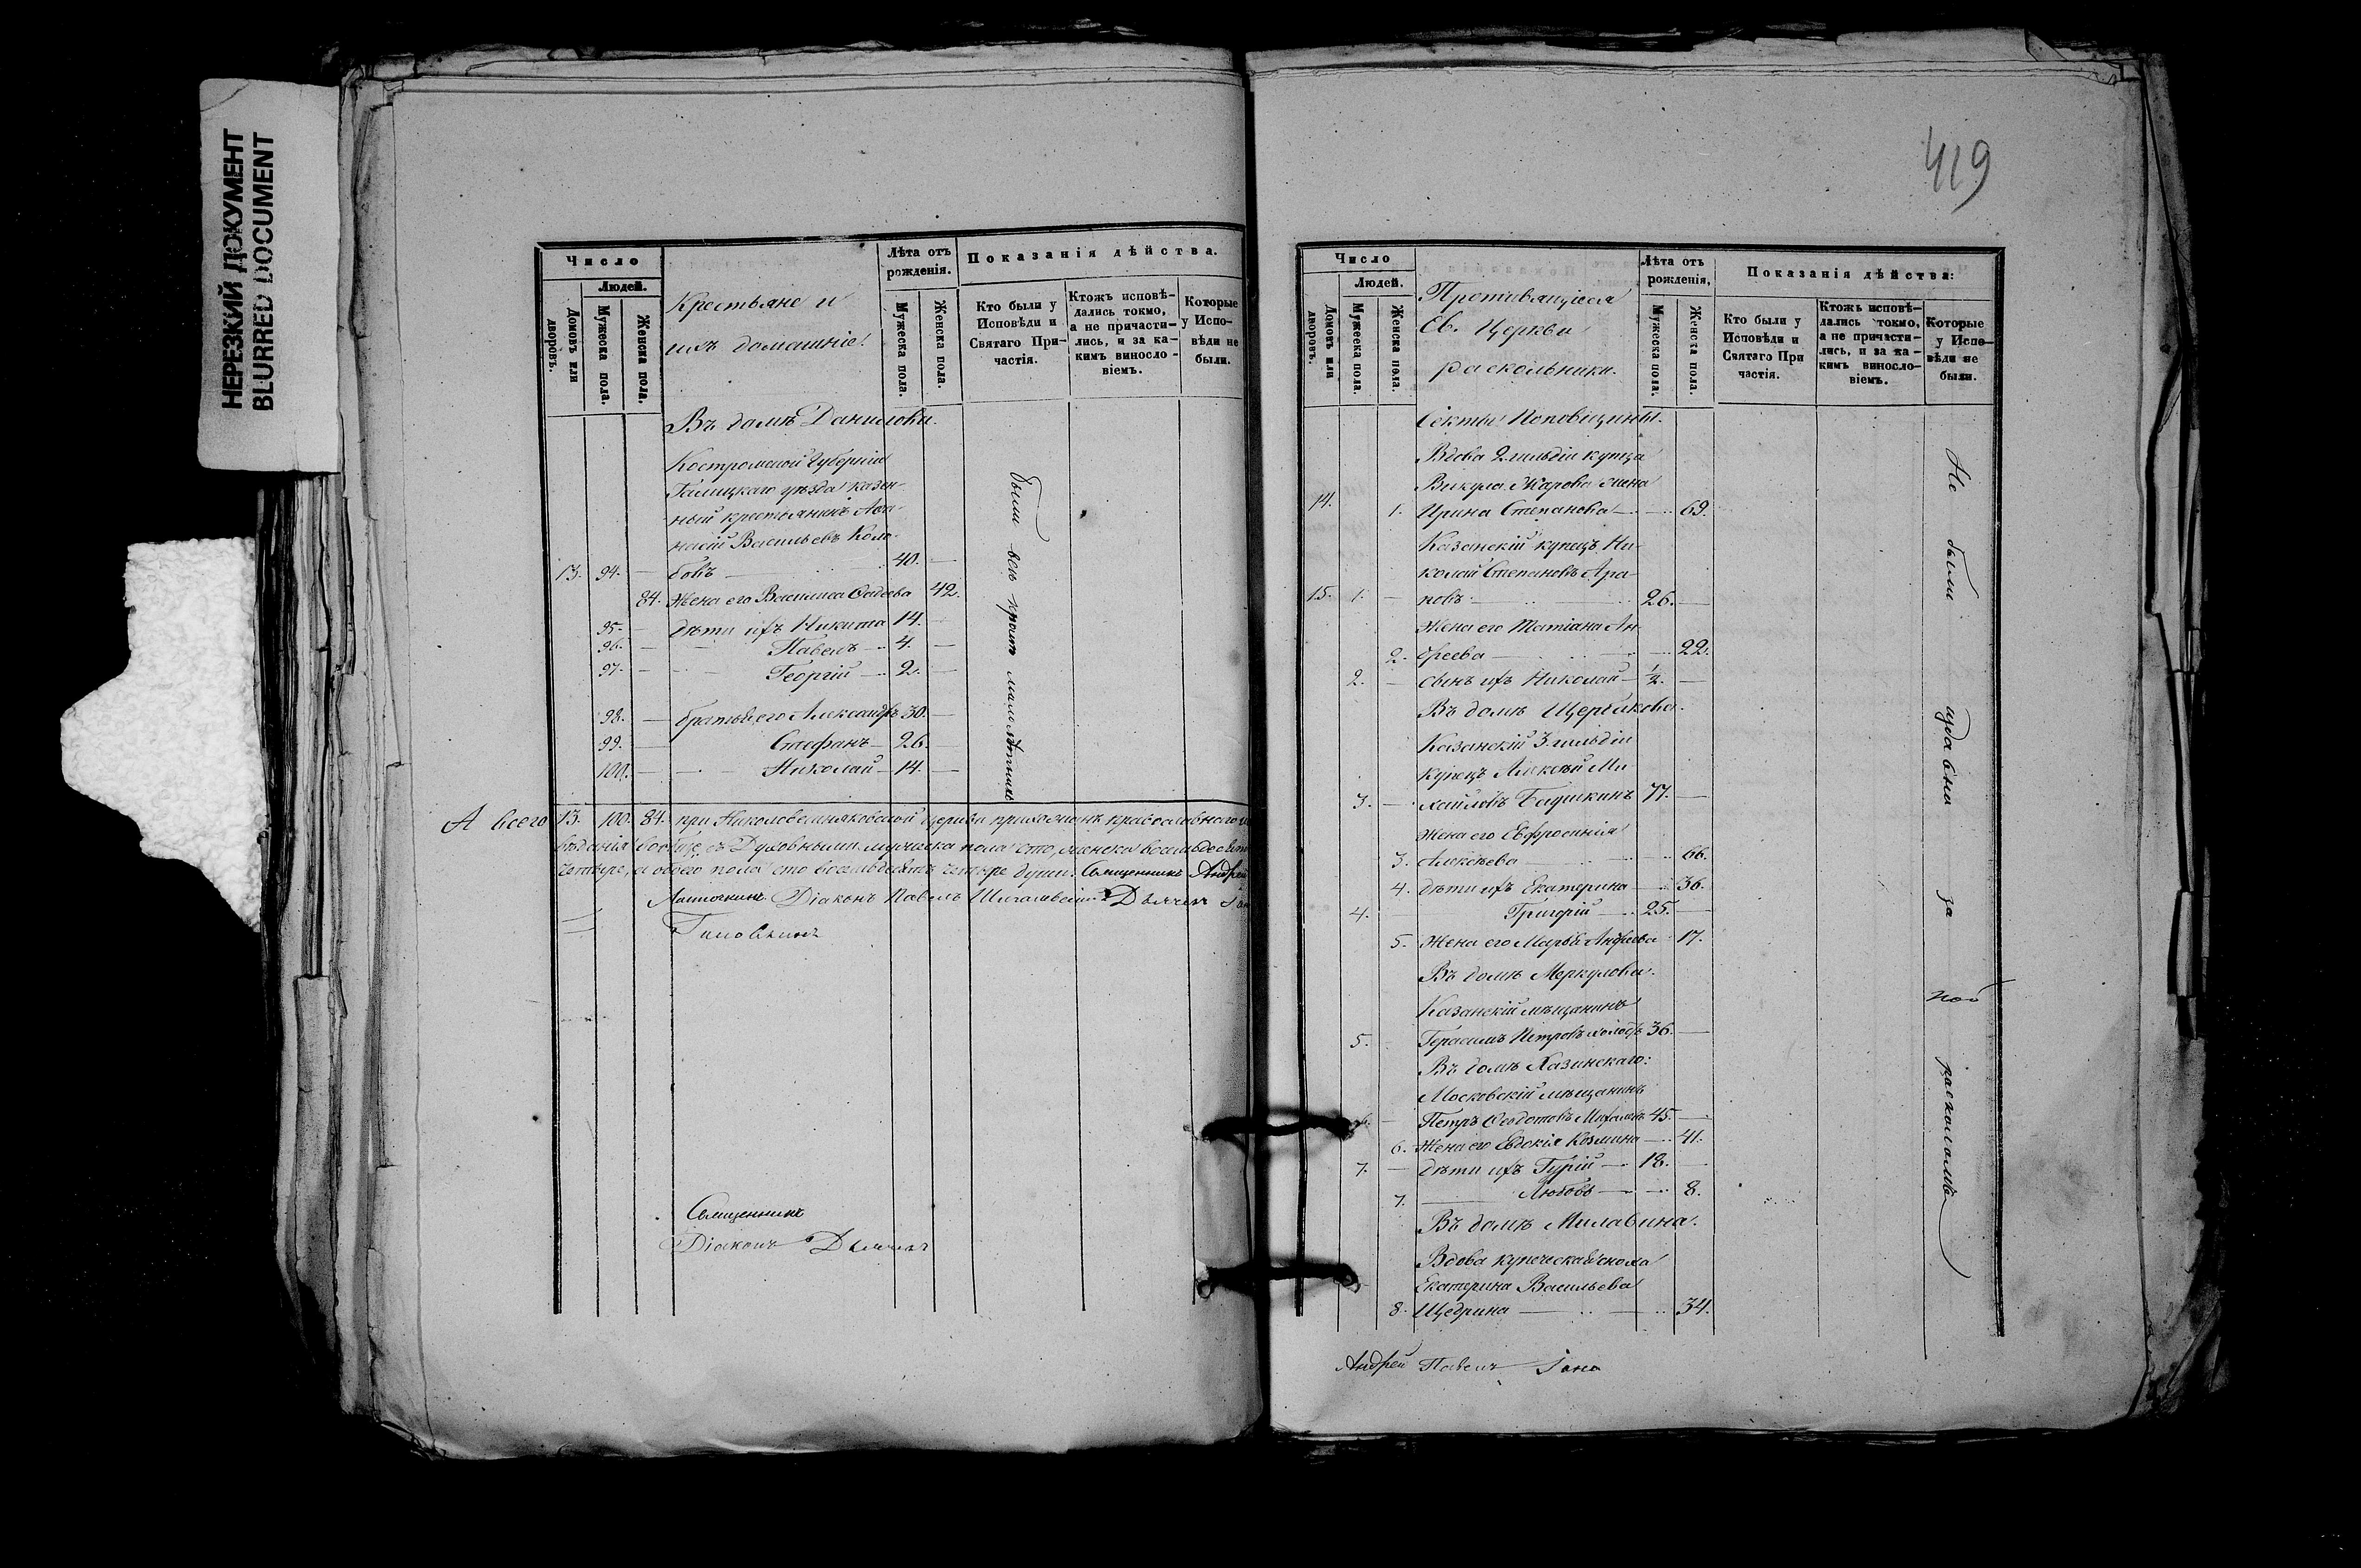 НЕРЕЗКИЙ ДОКУМЕНТ
BLURRED DOCUMENT
Число
Людей.
Домовъ или дворовъ.
Мужеска пола.
Женска пола.
Крестьяне и
ихъ домашніе.
Лѣта отъ рожденія.
Мужеска пола.
Женска пола.
Показанія дѣйства.
Кто были у Исповѣди и Святаго Причастія.
Ктожъ исповѣдались токмо, а не причастились, и за какимъ винословіемъ.
Которые у Исповѣди не были.
Въ домѣ Данилова.
Костромской Губерніи
Галицкаго уѣзда казен-
ный крестьянинъ Афа-
насій Васильевъ Коло-
13. 94. — бовъ — 40. —
84. Жена его Василиса Фадеева 42.
95. — дѣти ихъ Никита 14. —
96. — Павелъ — 4. —
97. — Георгій — 2. —
98. — братья его Александръ 30. —
99. — Стефанъ — 26. —
100. — Николай — 14. —
были всѣ кромѣ малолѣтныхъ
А всего 13. 100. 84. при Николовешняковской церкви прихожанъ православнаго
вѣданія вообще съ Духовными мужеска пола сто, женска восемьдесятъ
четыре, а обоего пола сто восемьдесятъ четыре души. Священникъ Андрей
Діаконъ Павелъ Дьячекъ
Священникъ
Діаконъ Дьячекъ
419
Число
Людей.
Домовъ или дворовъ.
Мужеска пола.
Женска пола.
Противящіеся
Св. Церкви
раскольники.
Лѣта отъ рожденія,
Мужеска пола.
Женска пола.
Показанія дѣйства:
Кто были у Исповѣди и Святаго При частія.
Ктожъ исповѣ-дались токмо, а не причасти-лись, и за ка-кимъ винослo-віемъ.
Которые у Испо-вѣди не были.
Секты Поповщины.
Вдова 2 гильдіи купца
Викула Жарова жена
14. 1. Ирина Степанова — 69.
Казанскій купецъ Ни-
колай Степановъ Ара-
15. 1. — повъ — 26. —
Жена его Татіана Ан-
2. дреева — 22.
2. — сынъ ихъ Николай — 1/2. —
Въ домѣ Щербакова.
Казанскій 3 гильдіи
купецъ Алексѣй Ми-
3. — хайловъ Башкинъ 77. —
Жена его Евфросинія
3. Алексѣева — 66.
4. дѣти ихъ Екатерина — 36.
4. Григорій — 25. —
5. Жена его Марья Андреева 17.
Въ домѣ Меркулова.
Казанскій мѣщанинъ
5. — Герасимъ Петровъ холостъ 36. —
Въ домѣ Хазинскаго:
Московскій мѣщанинъ
6. — Петръ Ѳедотовъ 45. —
6. Жена его Евдокія Козмина — 41.
7. — дѣти ихъ Гурій — 18. —
7. — Любовь — 8.
Въ домѣ Милавина.
Вдова купеческая жена
Екатерина Васильева
8. Щедрина — 34.
Не были издавна за раскололомъ
Андрей Павелъ Іона